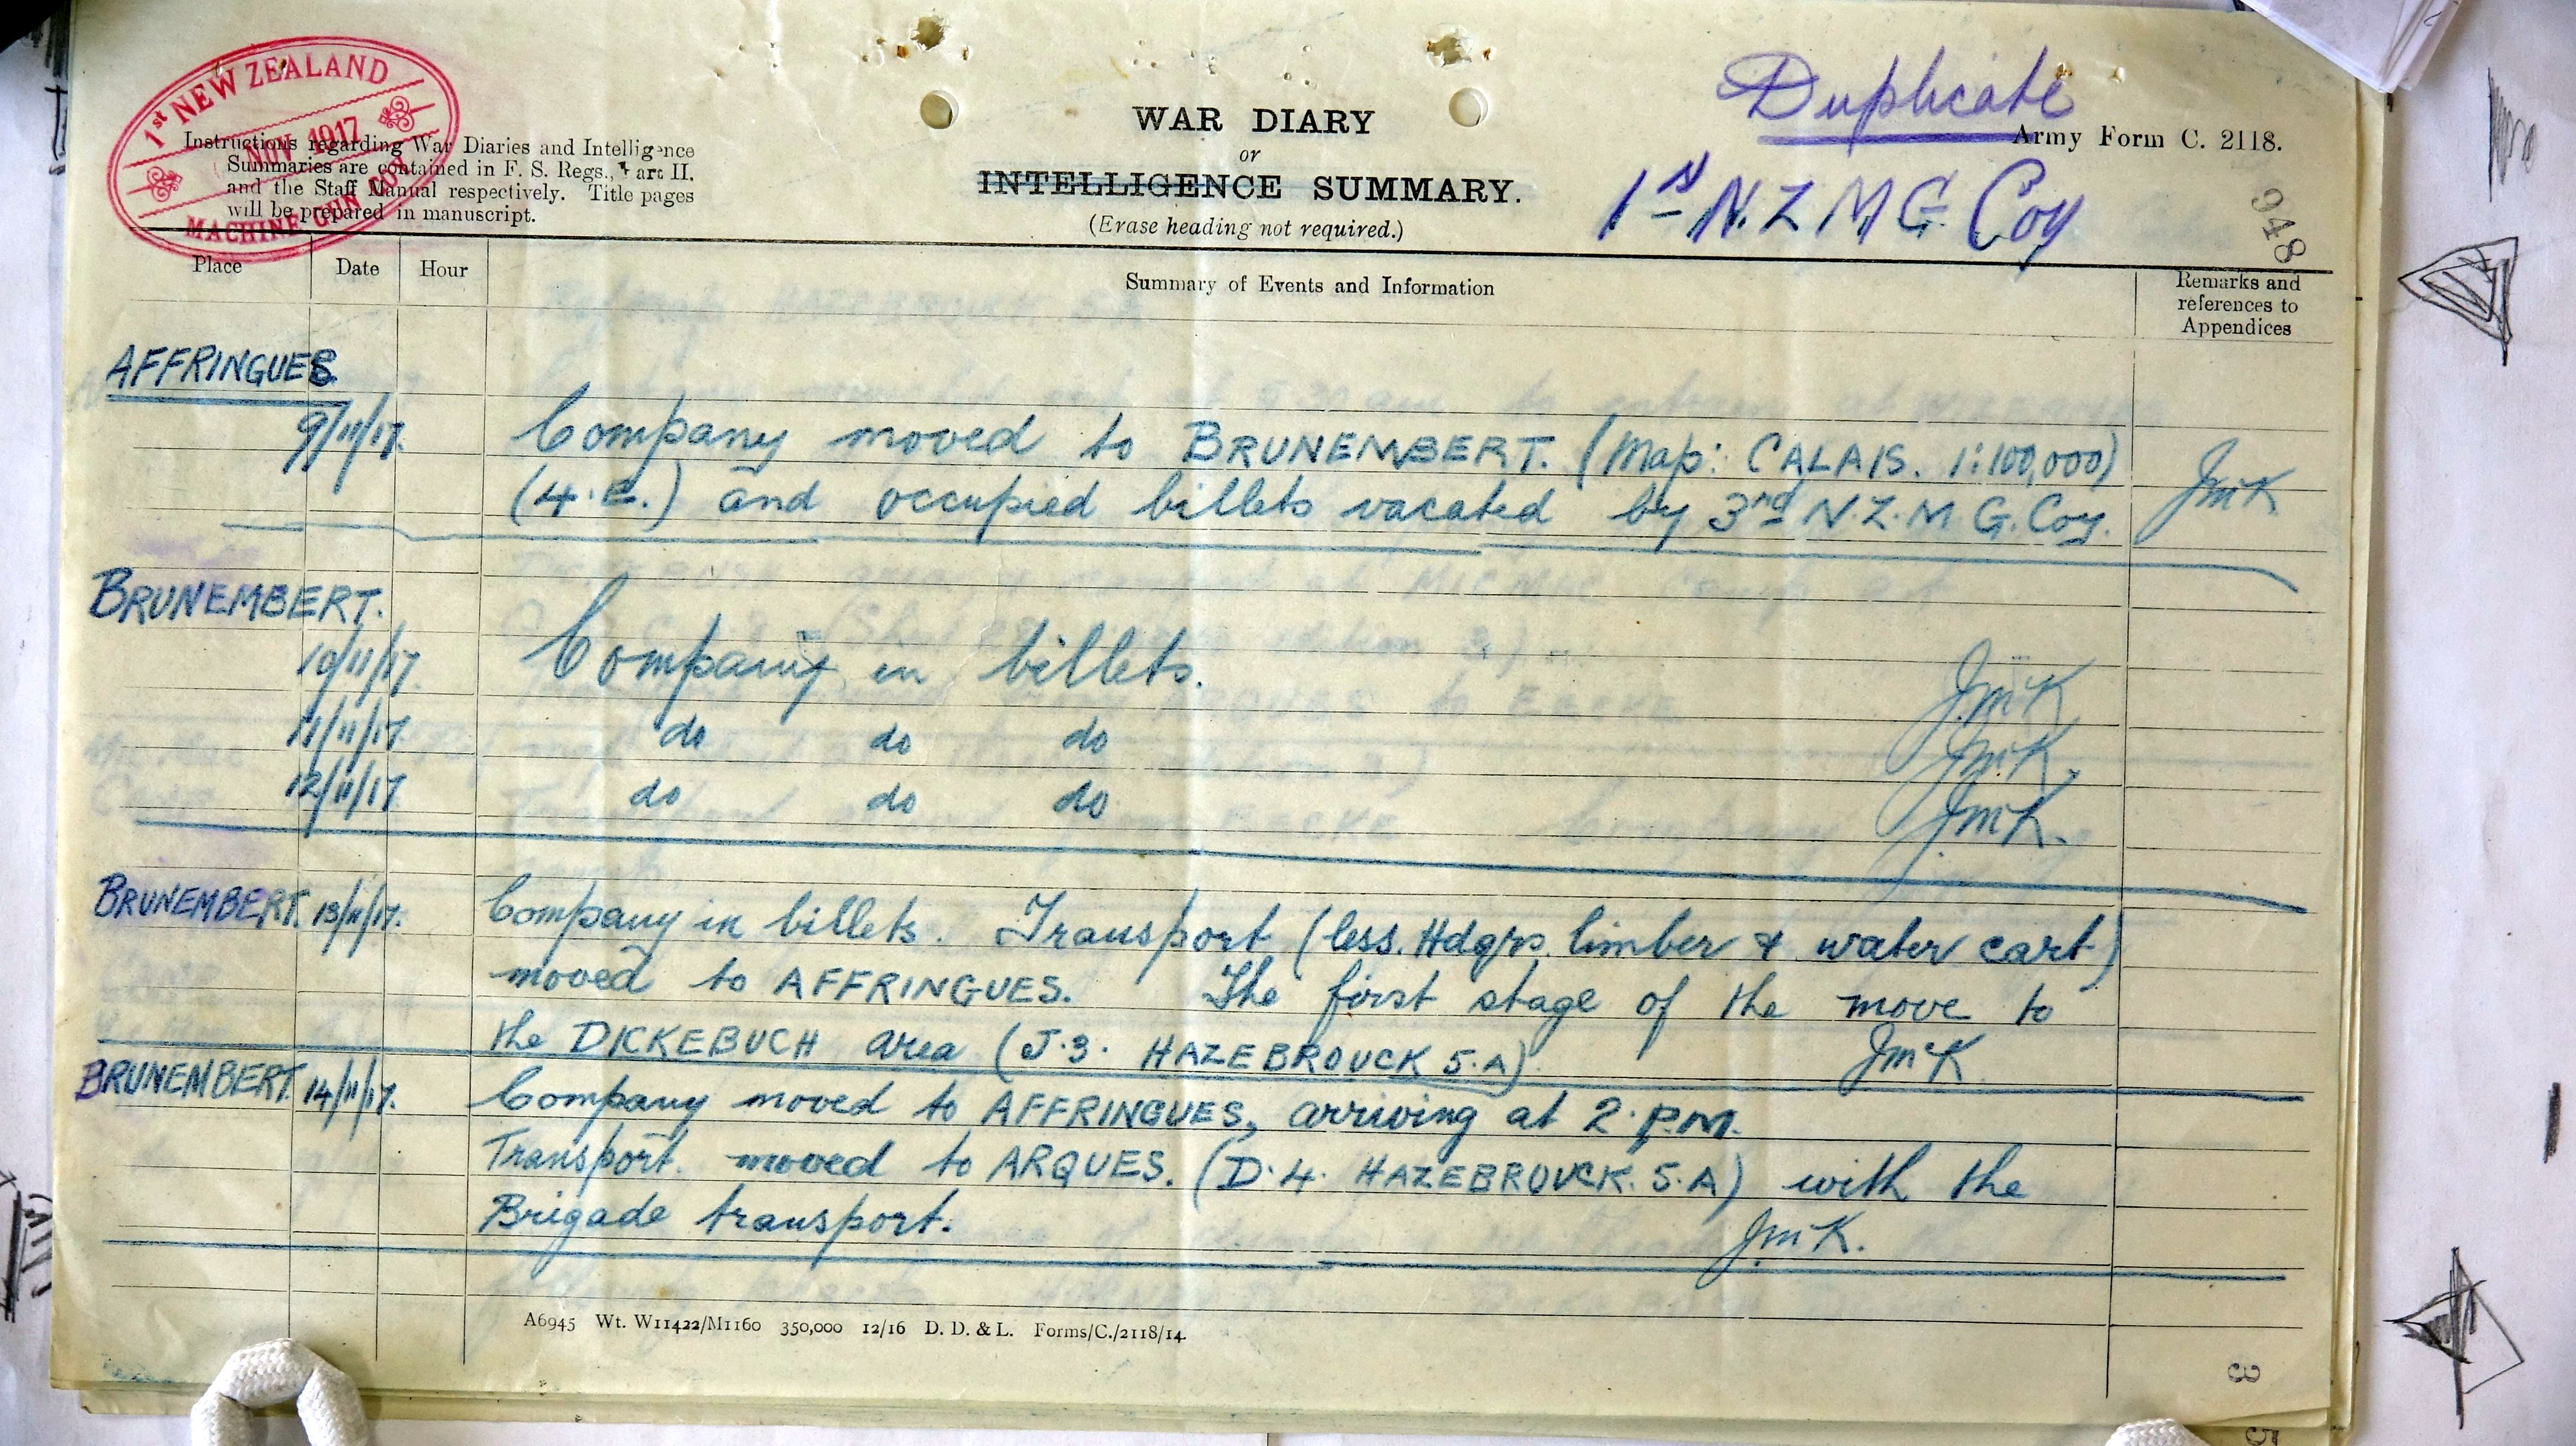 1st NEW ZEALAND
NOV 1917
MACHINE GUN COY
Instructions regarding War Diaries and Intelligence
Summaries are contained in F. S. Regs., Part II.
and the Staff Manual respectively. Title pages
will be prepared in manuscript.
WAR DIARY
or
INTELLIGENCE SUMMARY.
(Erase heading not required.)
Duplicate
Army Form C. 2118.
1st N.Z M G Coy
948
Place Date Hour Summary of Events and Information Remarks and references to Appendices
AFFRINGUES
9/11/17. Company moved to BRUNEMBERT. (Map: CALAIS. 1:100,000)
(4.E.) and occupied billets vacated by 3rd N.Z.M.G. Coy. JMcK
BRUNEMBERT.
10/11/17. Company in billets. JMcK
11/11/17. do do do JMcK.
12/11/17 do do do JMcK.
BRUNEMBERT. 13/11/17. Company in billets. Transport (less. Hdqrs. limber & water cart)
moved to AFFRINGUES. The first stage of the move to
the DICKEBUCH area (J.3. HAZEBROUCK 5.A) JMcK
BRUNEMBERT. 14/11/17. Company moved to AFFRINGUES, arriving at 2.P.M.
Transport. moved to ARQUES. (D.4. HAZEBROUCK. 5.A) with the
Brigade transport. JMcK.
A6945 Wt. W11422/M1160 350,000 12/16 D. D. & L. Forms/C./2118/14.
3
5